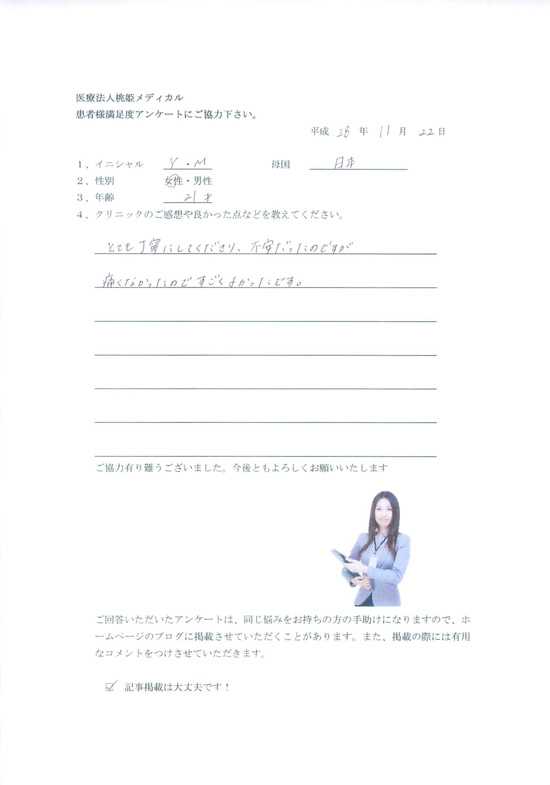 医療法人桃姫メディカル
患者様満足度アンケートにご協力下さい。
平成 28 年 11 月 22 日
1、イニシャル Y・M 母国 日本
2、性別 女性・男性
3、年齢 21才
4、クリニックのご感想や良かった点などを教えてください。
とても丁寧にしてくださり、不安だったのですが
痛くなかったのですごくよかったです。
ご協力有り難うございました。今後ともよろしくお願いいたします
ご回答いただいたアンケートは、同じ悩みをお持ちの方の手助けになりますので、ホ
ームページのブログに掲載させていただくことがあります。また、掲載の際には有用
なコメントをつけさせていただきます。
☑ 記事掲載は大丈夫です！